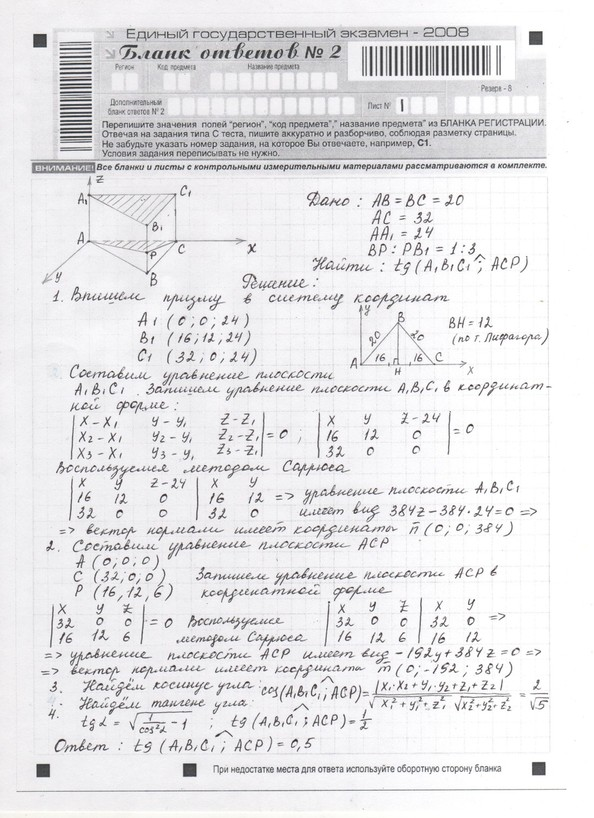 Единый государственный экзамен - 2008
Бланк ответов № 2
Регион Код предмета Название предмета
Резерв - 8
Дополнительный бланк ответов № 2
Лист № 1
Перепишите значения полей "регион", "код предмета"," название предмета" из БЛАНКА РЕГИСТРАЦИИ.
Отвечая на задания типа С теста, пишите аккуратно и разборчиво, соблюдая разметку страницы.
Не забудьте указать номер задания, на которое Вы отвечаете, например, С1.
Условия задания переписывать не нужно.
ВНИМАНИЕ! Все бланки и листы с контрольными измерительными материалами рассматриваются в комплекте.
Z A₁ C₁ B₁ A P C X Y B
Дано : AB = BC = 20
AC = 32
AA₁ = 24
BP : PB₁ = 1 : 3
Найти : tg (A₁B₁C₁ ; ACP)
Решение :
1. Впишем призму в систему координат
A₁ (0; 0; 24)
B₁ (16; 12; 24)
C₁ (32; 0; 24)
y B 20 20 A 16 H 16 C x
BH = 12
(по т. Пифагора)
Составим уравнение плоскости
A₁B₁C₁. Запишем уравнение плоскости A₁B₁C₁ в координат-
ной форме :
| X - X₁ Y - Y₁ Z - Z₁ | | X Y Z - 24 |
| X₂ - X₁ Y₂ - Y₁ Z₂ - Z₁ | = 0 ; | 16 12 0 | = 0
| X₃ - X₁ Y₃ - Y₁ Z₃ - Z₁ | | 32 0 0 |
Воспользуемся методом Саррюса
| X Y Z - 24 | X Y |
| 16 12 0 | 16 12 | => уравнение плоскости A₁B₁C₁
| 32 0 0 | 32 0 | имеет вид 384z - 384 · 24 = 0 =>
=> вектор нормали имеет координаты n̄ (0; 0; 384)
2. Составим уравнение плоскости ACP
A (0; 0; 0)
C (32; 0; 0) Запишем уравнение плоскости ACP в
P (16, 12, 6) координатной форме
| X Y Z | | X Y Z | X Y |
| 32 0 0 | = 0 Воспользуемся | 32 0 0 | 32 0 | =>
| 16 12 6 | методом Саррюса | 16 12 6 | 16 12 |
=> уравнение плоскости ACP имеет вид -192y + 384z = 0 =>
=> вектор нормали имеет координата m̄ (0; -192; 384)
3. Найдём косинус угла : cos(A₁B₁C₁ ; ACP) = |X₁·X₂ + Y₁·Y₂ + Z₁·Z₂| / √(X₁² + Y₁² + Z₁²) √(X₂² + Y₂² + Z₂²) = 2/√5
4. Найдём тангенс угла :
tg α = √(1/cos²α - 1) ; tg (A₁B₁C₁ ; ACP) = 1/2
Ответ : tg (A₁B₁C₁ ; ACP) = 0,5
При недостатке места для ответа используйте оборотную сторону бланка